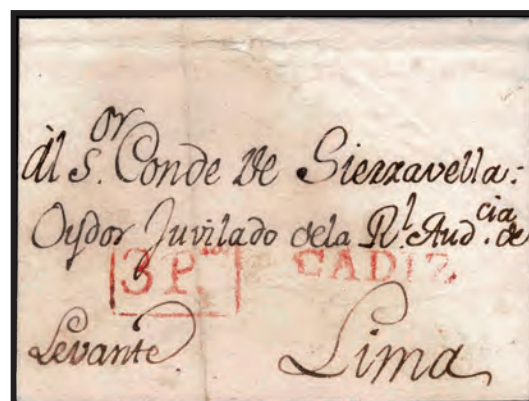 Al S.or Conde de Sierravella:
Oydor Juvilado dela R.l Aud.cia de
3 P.tes CADIZ
Levante Lima